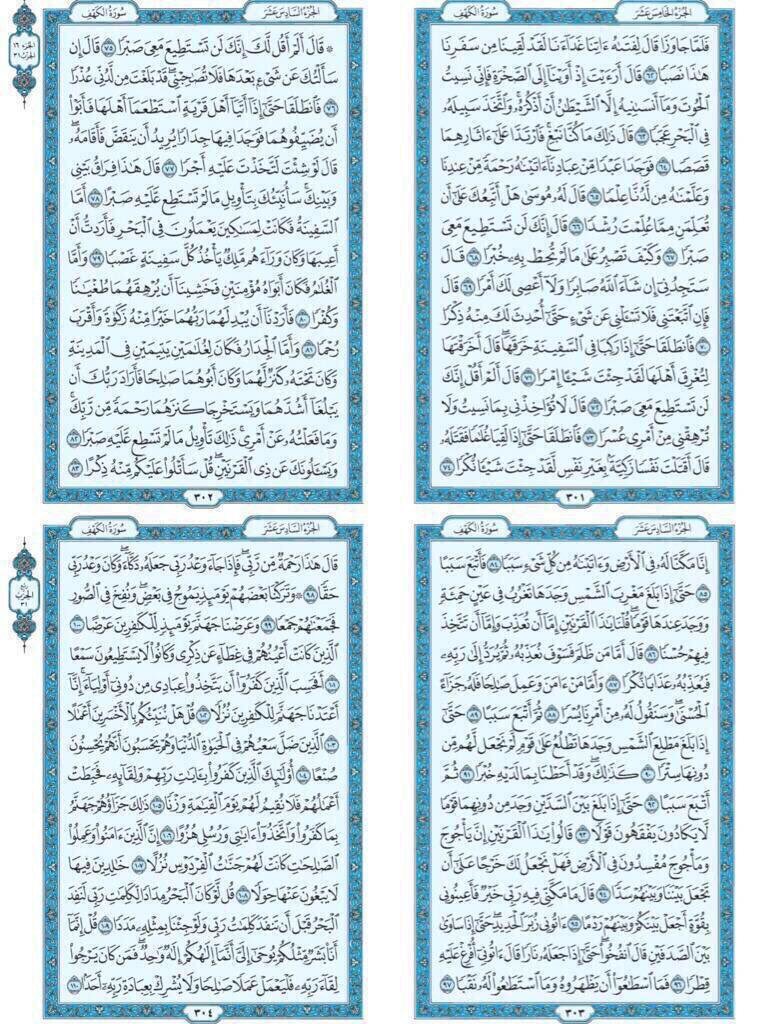 سُورَةُ الكَهْفِ
الجُزْءُ الخَامِسَ عَشَرَ
فَلَمَّا جَاوَزَا قَالَ لِفَتَىٰهُ ءَاتِنَا غَدَآءَنَا لَقَدْ لَقِينَا مِن سَفَرِنَا
هَٰذَا نَصَبًا ٦٢ قَالَ أَرَءَيْتَ إِذْ أَوَيْنَآ إِلَى ٱلصَّخْرَةِ فَإِنِّي نَسِيتُ
ٱلْحُوتَ وَمَآ أَنسَىٰنِيهُ إِلَّا ٱلشَّيْطَٰنُ أَنْ أَذْكُرَهُۥ وَٱتَّخَذَ سَبِيلَهُۥ
فِي ٱلْبَحْرِ عَجَبًا ٦٣ قَالَ ذَٰلِكَ مَا كُنَّا نَبْغِ فَٱرْتَدَّا عَلَىٰٓ ءَاثَارِهِمَا
قَصَصًا ٦٤ فَوَجَدَا عَبْدًا مِّنْ عِبَادِنَآ ءَاتَيْنَٰهُ رَحْمَةً مِّنْ عِندِنَا
وَعَلَّمْنَٰهُ مِن لَّدُنَّا عِلْمًا ٦٥ قَالَ لَهُۥ مُوسَىٰ هَلْ أَتَّبِعُكَ عَلَىٰٓ أَن
تُعَلِّمَنِ مِمَّا عُلِّمْتَ رُشْدًا ٦٦ قَالَ إِنَّكَ لَن تَسْتَطِيعَ مَعِيَ
صَبْرًا ٦٧ وَكَيْفَ تَصْبِرُ عَلَىٰ مَا لَمْ تُحِطْ بِهِۦ خُبْرًا ٦٨ قَالَ
سَتَجِدُنِيٓ إِن شَآءَ ٱللَّهُ صَابِرًا وَلَآ أَعْصِي لَكَ أَمْرًا ٦٩ قَالَ
فَإِنِ ٱتَّبَعْتَنِي فَلَا تَسْـَٔلْنِي عَن شَيْءٍ حَتَّىٰٓ أُحْدِثَ لَكَ مِنْهُ ذِكْرًا
٧٠ فَٱنطَلَقَا حَتَّىٰٓ إِذَا رَكِبَا فِي ٱلسَّفِينَةِ خَرَقَهَا ۖ قَالَ أَخَرَقْتَهَا
لِتُغْرِقَ أَهْلَهَا لَقَدْ جِئْتَ شَيْـًٔا إِمْرًا ٧١ قَالَ أَلَمْ أَقُلْ إِنَّكَ
لَن تَسْتَطِيعَ مَعِيَ صَبْرًا ٧٢ قَالَ لَا تُؤَاخِذْنِي بِمَا نَسِيتُ وَلَا
تُرْهِقْنِي مِنْ أَمْرِي عُسْرًا ٧٣ فَٱنطَلَقَا حَتَّىٰٓ إِذَا لَقِيَا غُلَٰمًا فَقَتَلَهُۥ
قَالَ أَقَتَلْتَ نَفْسًا زَكِيَّةًۢ بِغَيْرِ نَفْسٍ لَّقَدْ جِئْتَ شَيْـًٔا نُّكْرًا ٧٤
٣٠١
سُورَةُ الكَهْفِ
الجُزْءُ السَّادِسَ عَشَرَ
الجزء ١٦
الحزب ٣١
۞ قَالَ أَلَمْ أَقُل لَّكَ إِنَّكَ لَن تَسْتَطِيعَ مَعِيَ صَبْرًا ٧٥ قَالَ إِن
سَأَلْتُكَ عَن شَيْءٍۭ بَعْدَهَا فَلَا تُصَٰحِبْنِي ۖ قَدْ بَلَغْتَ مِن لَّدُنِّي عُذْرًا
٧٦ فَٱنطَلَقَا حَتَّىٰٓ إِذَآ أَتَيَآ أَهْلَ قَرْيَةٍ ٱسْتَطْعَمَآ أَهْلَهَا فَأَبَوْا۟
أَن يُضَيِّفُوهُمَا فَوَجَدَا فِيهَا جِدَارًا يُرِيدُ أَن يَنقَضَّ فَأَقَامَهُۥ ۖ
قَالَ لَوْ شِئْتَ لَتَّخَذْتَ عَلَيْهِ أَجْرًا ٧٧ قَالَ هَٰذَا فِرَاقُ بَيْنِي
وَبَيْنِكَ ۚ سَأُنَبِّئُكَ بِتَأْوِيلِ مَا لَمْ تَسْتَطِع عَّلَيْهِ صَبْرًا ٧٨ أَمَّا
ٱلسَّفِينَةُ فَكَانَتْ لِمَسَٰكِينَ يَعْمَلُونَ فِي ٱلْبَحْرِ فَأَرَدتُّ أَنْ
أَعِيبَهَا وَكَانَ وَرَآءَهُم مَّلِكٌ يَأْخُذُ كُلَّ سَفِينَةٍ غَصْبًا ٧٩ وَأَمَّا
ٱلْغُلَٰمُ فَكَانَ أَبَوَاهُ مُؤْمِنَيْنِ فَخَشِينَآ أَن يُرْهِقَهُمَا طُغْيَٰنًا
وَكُفْرًا ٨٠ فَأَرَدْنَآ أَن يُبْدِلَهُمَا رَبُّهُمَا خَيْرًا مِّنْهُ زَكَوٰةً وَأَقْرَبَ
رُحْمًا ٨١ وَأَمَّا ٱلْجِدَارُ فَكَانَ لِغُلَٰمَيْنِ يَتِيمَيْنِ فِي ٱلْمَدِينَةِ
وَكَانَ تَحْتَهُۥ كَنزٌ لَّهُمَا وَكَانَ أَبُوهُمَا صَٰلِحًا فَأَرَادَ رَبُّكَ أَن
يَبْلُغَآ أَشُدَّهُمَا وَيَسْتَخْرِجَا كَنزَهُمَا رَحْمَةً مِّن رَّبِّكَ ۚ
وَمَا فَعَلْتُهُۥ عَنْ أَمْرِي ۚ ذَٰلِكَ تَأْوِيلُ مَا لَمْ تَسْطِع عَّلَيْهِ صَبْرًا ٨٢
وَيَسْـَٔلُونَكَ عَن ذِي ٱلْقَرْنَيْنِ ۖ قُلْ سَأَتْلُوا۟ عَلَيْكُم مِّنْهُ ذِكْرًا ٨٣
٣٠٢
سُورَةُ الكَهْفِ
الجُزْءُ السَّادِسَ عَشَرَ
إِنَّا مَكَّنَّا لَهُۥ فِي ٱلْأَرْضِ وَءَاتَيْنَٰهُ مِن كُلِّ شَيْءٍ سَبَبًا ٨٤ فَأَتْبَعَ سَبَبًا
٨٥ حَتَّىٰٓ إِذَا بَلَغَ مَغْرِبَ ٱلشَّمْسِ وَجَدَهَا تَغْرُبُ فِي عَيْنٍ حَمِئَةٍ
وَوَجَدَ عِندَهَا قَوْمًا ۗ قُلْنَا يَٰذَا ٱلْقَرْنَيْنِ إِمَّآ أَن تُعَذِّبَ وَإِمَّآ أَن تَتَّخِذَ
فِيهِمْ حُسْنًا ٨٦ قَالَ أَمَّا مَن ظَلَمَ فَسَوْفَ نُعَذِّبُهُۥ ثُمَّ يُرَدُّ إِلَىٰ رَبِّهِۦ
فَيُعَذِّبُهُۥ عَذَابًا نُّكْرًا ٨٧ وَأَمَّا مَنْ ءَامَنَ وَعَمِلَ صَٰلِحًا فَلَهُۥ جَزَآءً
ٱلْحُسْنَىٰ ۖ وَسَنَقُولُ لَهُۥ مِنْ أَمْرِنَا يُسْرًا ٨٨ ثُمَّ أَتْبَعَ سَبَبًا ٨٩ حَتَّىٰٓ
إِذَا بَلَغَ مَطْلِعَ ٱلشَّمْسِ وَجَدَهَا تَطْلُعُ عَلَىٰ قَوْمٍ لَّمْ نَجْعَل لَّهُم مِّن
دُونِهَا سِتْرًا ٩٠ كَذَٰلِكَ ۖ وَقَدْ أَحَطْنَا بِمَا لَدَيْهِ خُبْرًا ٩١ ثُمَّ
أَتْبَعَ سَبَبًا ٩٢ حَتَّىٰٓ إِذَا بَلَغَ بَيْنَ ٱلسَّدَّيْنِ وَجَدَ مِن دُونِهِمَا قَوْمًا
لَّا يَكَادُونَ يَفْقَهُونَ قَوْلًا ٩٣ قَالُوا۟ يَٰذَا ٱلْقَرْنَيْنِ إِنَّ يَأْجُوجَ
وَمَأْجُوجَ مُفْسِدُونَ فِي ٱلْأَرْضِ فَهَلْ نَجْعَلُ لَكَ خَرْجًا عَلَىٰٓ أَن
تَجْعَلَ بَيْنَنَا وَبَيْنَهُمْ سَدًّا ٩٤ قَالَ مَا مَكَّنِّي فِيهِ رَبِّي خَيْرٌ فَأَعِينُونِي
بِقُوَّةٍ أَجْعَلْ بَيْنَكُمْ وَبَيْنَهُمْ رَدْمًا ٩٥ ءَاتُونِي زُبَرَ ٱلْحَدِيدِ ۖ حَتَّىٰٓ إِذَا سَاوَىٰ
بَيْنَ ٱلصَّدَفَيْنِ قَالَ ٱنفُخُوا۟ ۖ حَتَّىٰٓ إِذَا جَعَلَهُۥ نَارًا قَالَ ءَاتُونِيٓ أُفْرِغْ عَلَيْهِ
قِطْرًا ٩٦ فَمَا ٱسْطَٰعُوٓا۟ أَن يَظْهَرُوهُ وَمَا ٱسْتَطَٰعُوا۟ لَهُۥ نَقْبًا ٩٧
٣٠٣
سُورَةُ الكَهْفِ
الجُزْءُ السَّادِسَ عَشَرَ
ربع
الحزب
٣١
قَالَ هَٰذَا رَحْمَةٌ مِّن رَّبِّي ۖ فَإِذَا جَآءَ وَعْدُ رَبِّي جَعَلَهُۥ دَكَّآءَ ۖ وَكَانَ وَعْدُ رَبِّي
حَقًّا ٩٨ ۞ وَتَرَكْنَا بَعْضَهُمْ يَوْمَئِذٍ يَمُوجُ فِي بَعْضٍ ۖ وَنُفِخَ فِي ٱلصُّورِ
فَجَمَعْنَٰهُمْ جَمْعًا ٩٩ وَعَرَضْنَا جَهَنَّمَ يَوْمَئِذٍ لِّلْكَٰفِرِينَ عَرْضًا ١٠٠
ٱلَّذِينَ كَانَتْ أَعْيُنُهُمْ فِي غِطَآءٍ عَن ذِكْرِي وَكَانُوا۟ لَا يَسْتَطِيعُونَ سَمْعًا
١٠١ أَفَحَسِبَ ٱلَّذِينَ كَفَرُوٓا۟ أَن يَتَّخِذُوا۟ عِبَادِي مِن دُونِيٓ أَوْلِيَآءَ ۚ إِنَّآ
أَعْتَدْنَا جَهَنَّمَ لِلْكَٰفِرِينَ نُزُلًا ١٠٢ قُلْ هَلْ نُنَبِّئُكُم بِٱلْأَخْسَرِينَ أَعْمَٰلًا
١٠٣ ٱلَّذِينَ ضَلَّ سَعْيُهُمْ فِي ٱلْحَيَوٰةِ ٱلدُّنْيَا وَهُمْ يَحْسَبُونَ أَنَّهُمْ يُحْسِنُونَ
صُنْعًا ١٠٤ أُو۟لَٰٓئِكَ ٱلَّذِينَ كَفَرُوا۟ بِـَٔايَٰتِ رَبِّهِمْ وَلِقَآئِهِۦ فَحَبِطَتْ
أَعْمَٰلُهُمْ فَلَا نُقِيمُ لَهُمْ يَوْمَ ٱلْقِيَٰمَةِ وَزْنًا ١٠٥ ذَٰلِكَ جَزَآؤُهُمْ جَهَنَّمُ
بِمَا كَفَرُوا۟ وَٱتَّخَذُوٓا۟ ءَايَٰتِي وَرُسُلِي هُزُوًا ١٠٦ إِنَّ ٱلَّذِينَ ءَامَنُوا۟ وَعَمِلُوا۟
ٱلصَّٰلِحَٰتِ كَانَتْ لَهُمْ جَنَّٰتُ ٱلْفِرْدَوْسِ نُزُلًا ١٠٧ خَٰلِدِينَ فِيهَا
لَا يَبْغُونَ عَنْهَا حِوَلًا ١٠٨ قُل لَّوْ كَانَ ٱلْبَحْرُ مِدَادًا لِّكَلِمَٰتِ رَبِّي لَنَفِدَ
ٱلْبَحْرُ قَبْلَ أَن تَنفَدَ كَلِمَٰتُ رَبِّي وَلَوْ جِئْنَا بِمِثْلِهِۦ مَدَدًا ١٠٩ قُلْ إِنَّمَآ
أَنَا۠ بَشَرٌ مِّثْلُكُمْ يُوحَىٰٓ إِلَيَّ أَنَّمَآ إِلَٰهُكُمْ إِلَٰهٌ وَٰحِدٌ ۖ فَمَن كَانَ يَرْجُوا۟
لِقَآءَ رَبِّهِۦ فَلْيَعْمَلْ عَمَلًا صَٰلِحًا وَلَا يُشْرِكْ بِعِبَادَةِ رَبِّهِۦٓ أَحَدًۢا ١١٠
٣٠٤